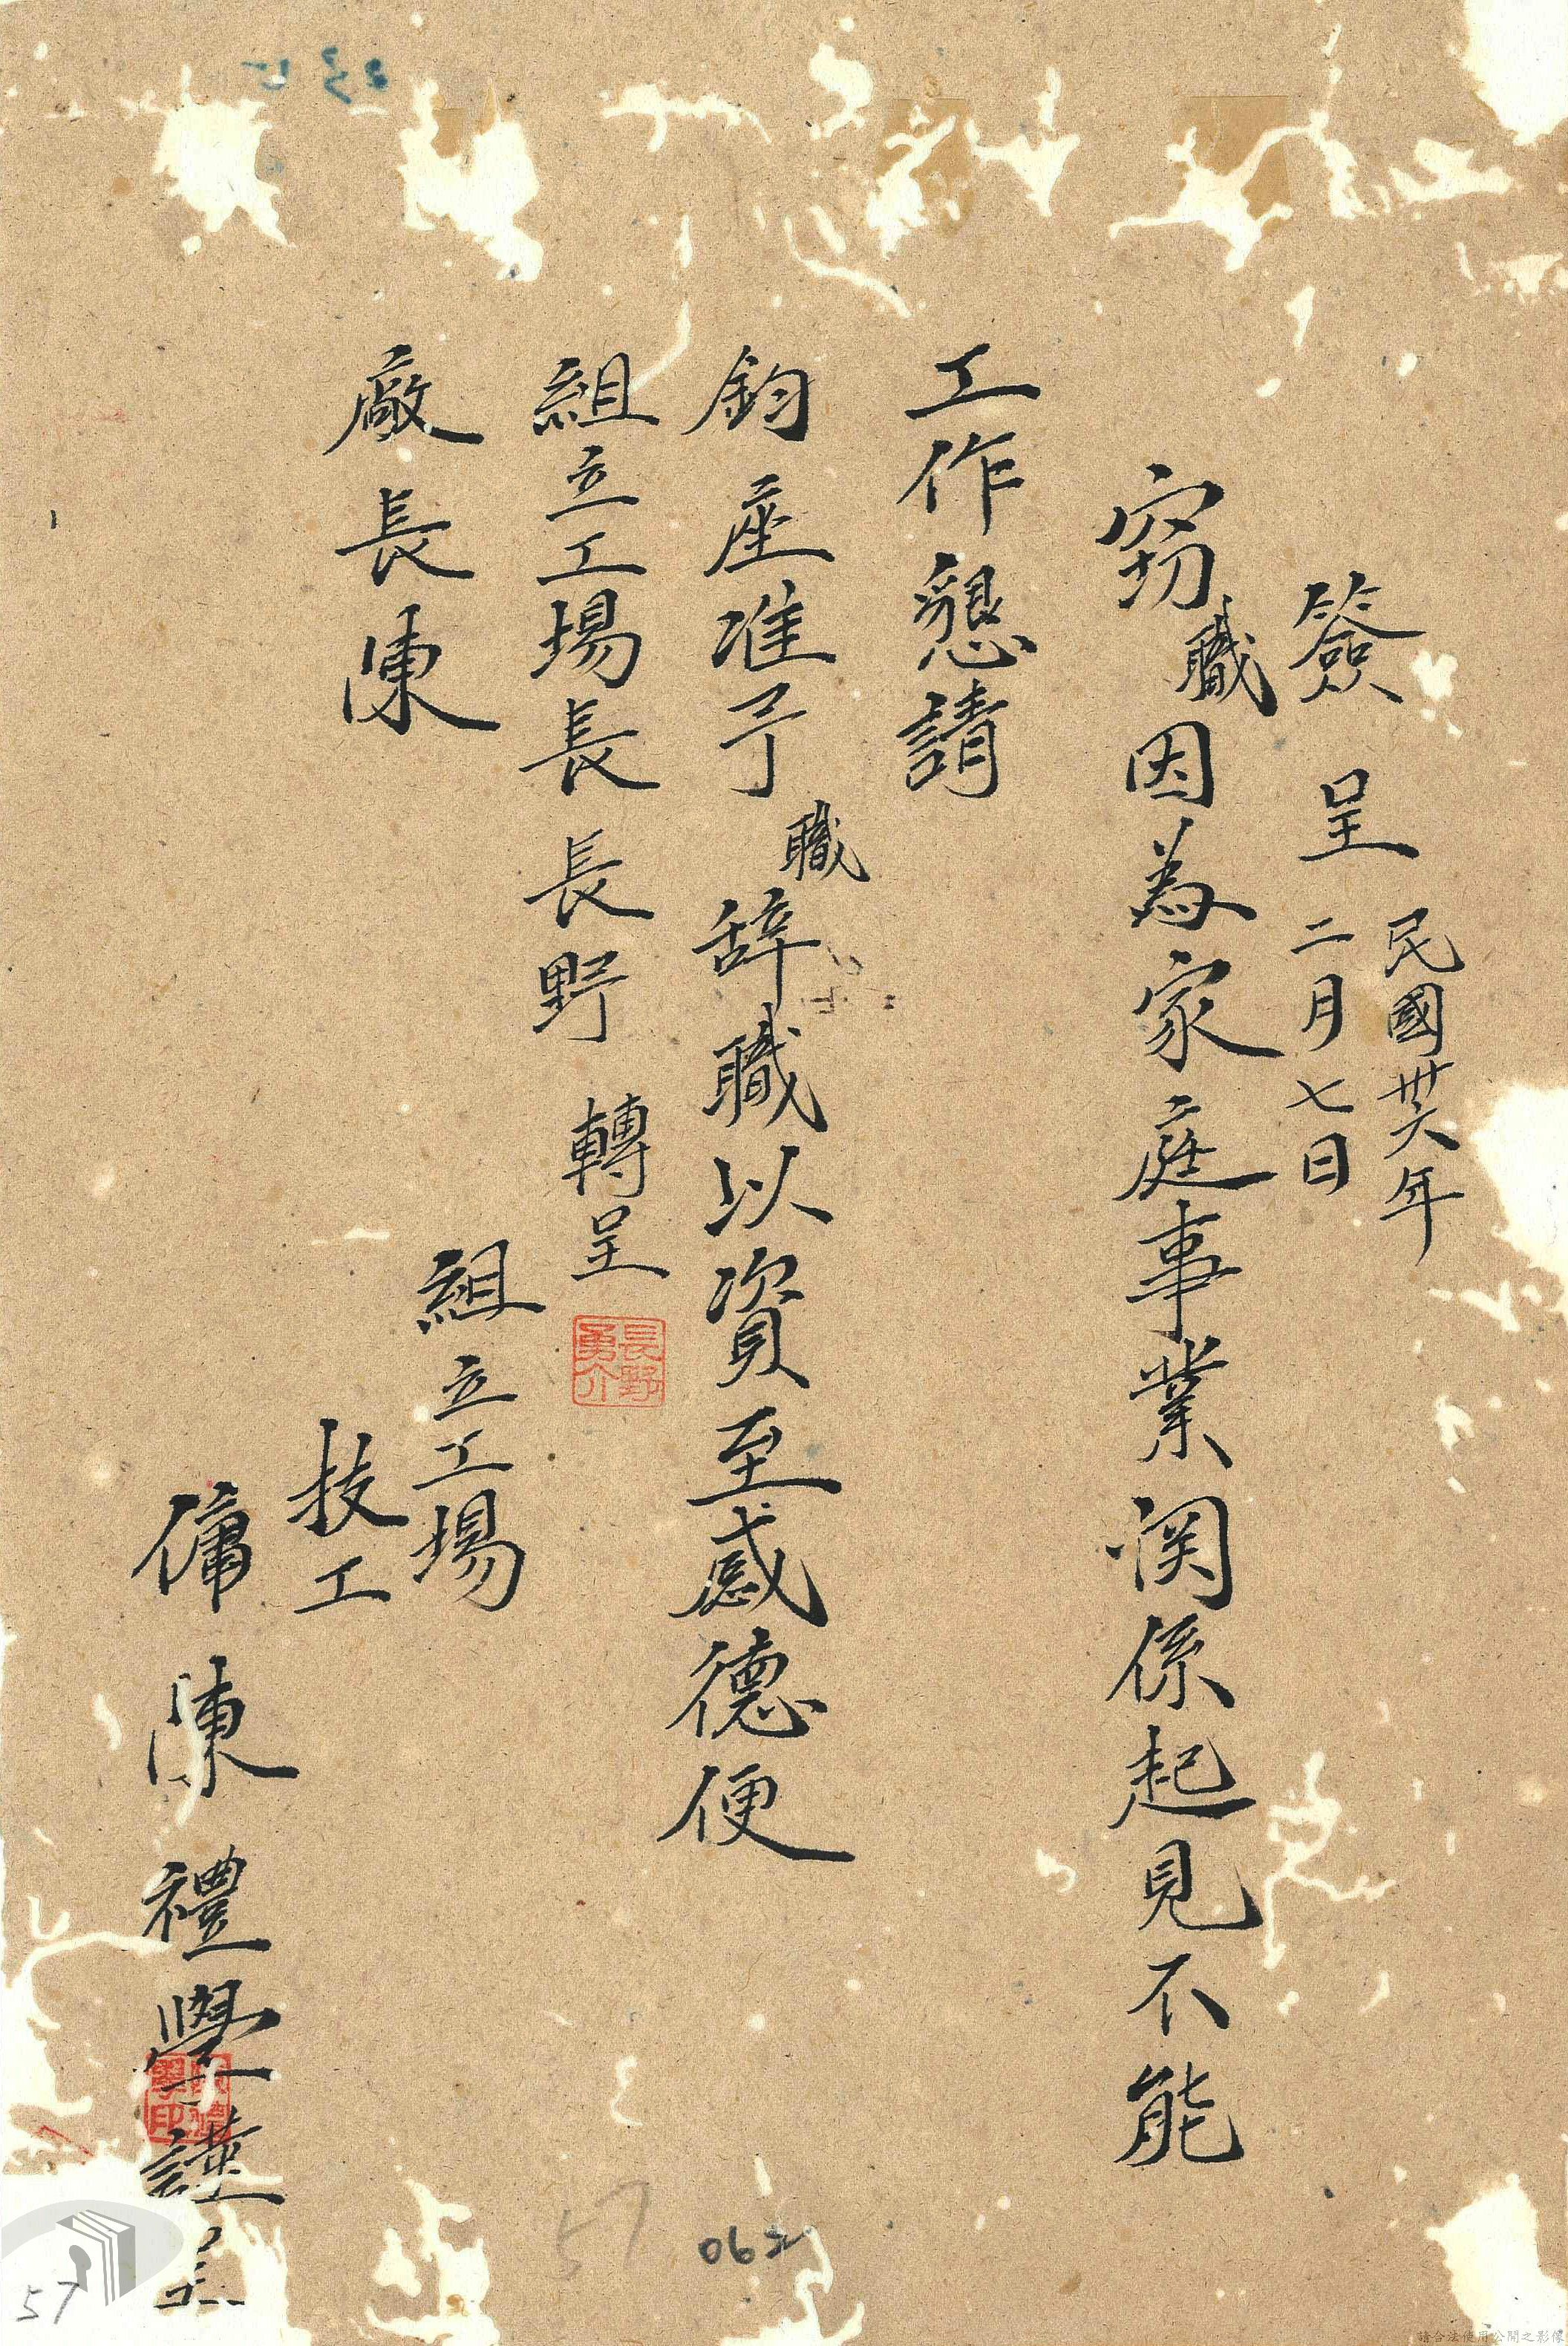 簽呈 民國卅六年
二月七日
窃職因為家庭事業関係起見不能
工作懇請
鈞座准予職辞職以資至感德便
組立工場長長野 轉呈
長野
勇介
廠長陳
組立工場
技工
傭 陳禮學謹呈
學印
57
062
57
請合法使用公開之影像